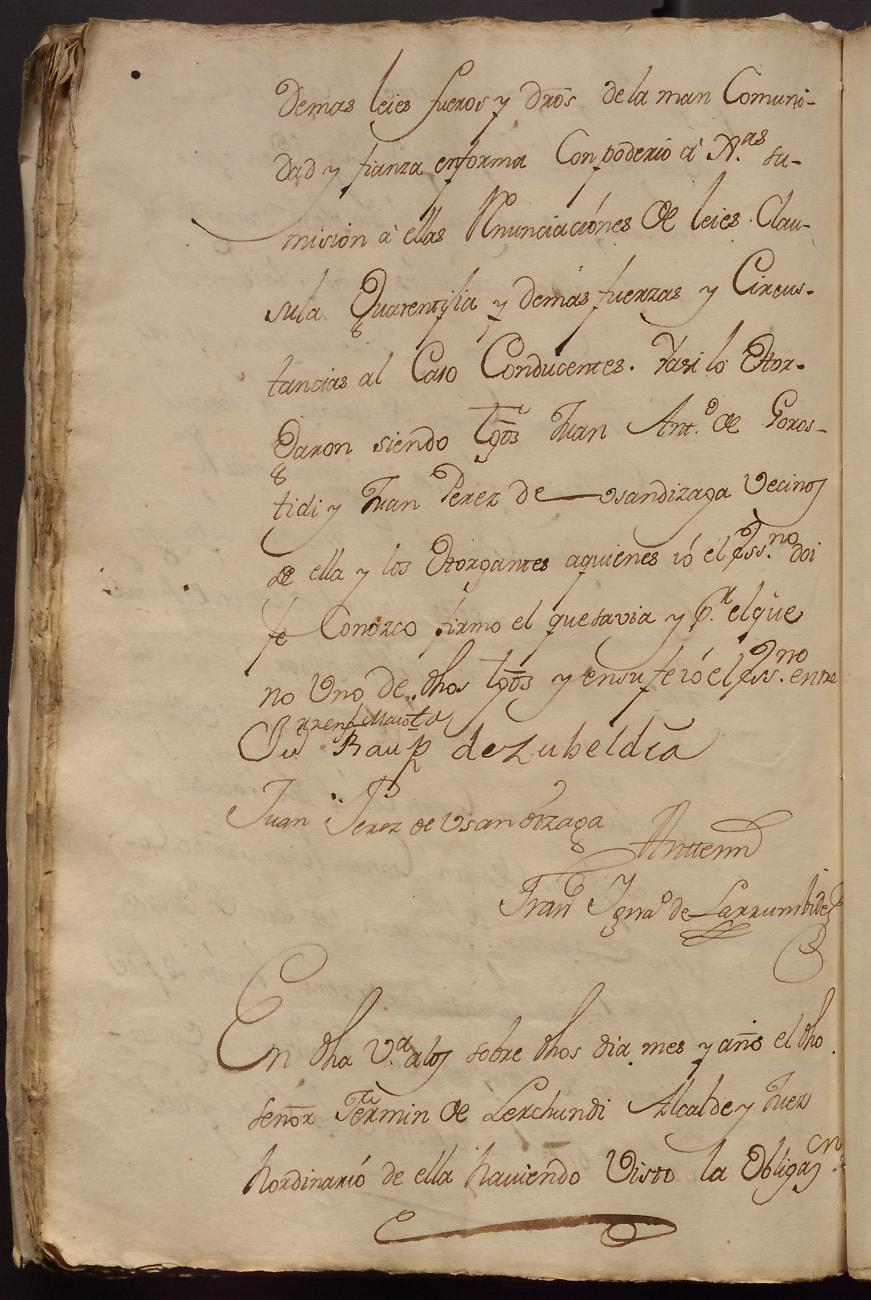 Demas leies fueros y dr̄os de la man Comuni-
dad y fianza enforma Con poderio à N.as su-
misión à ellas Rnunciaciónes de leies. Clau-
sula Quarentijia y demas fuerzas y Circus-
tancias al Caso Conducentes. Yasi lo Otor-
garon siendo tḡos Juan Ant.o de Goros-
tidi y Juan Perez de Usandizaga Vecinos
de ella y los Otorgantes aquienes ió el ess.no doi
fe Conozco firmo el que savia y p.r el que
no Uno de dhos tḡos y ensu fe ió el ess.no entre
Bau de Zubeldia
Juan Perez de Vsandizaga
Antemi
Fran.co Ignaº de Larrumbide
En dha V.a alos sobre dhos dia mes y año el dho
señor Fermin de Lerchundi Alcalde y Juez
hordinarió de ella haviendo Visto la Obligaz.cn